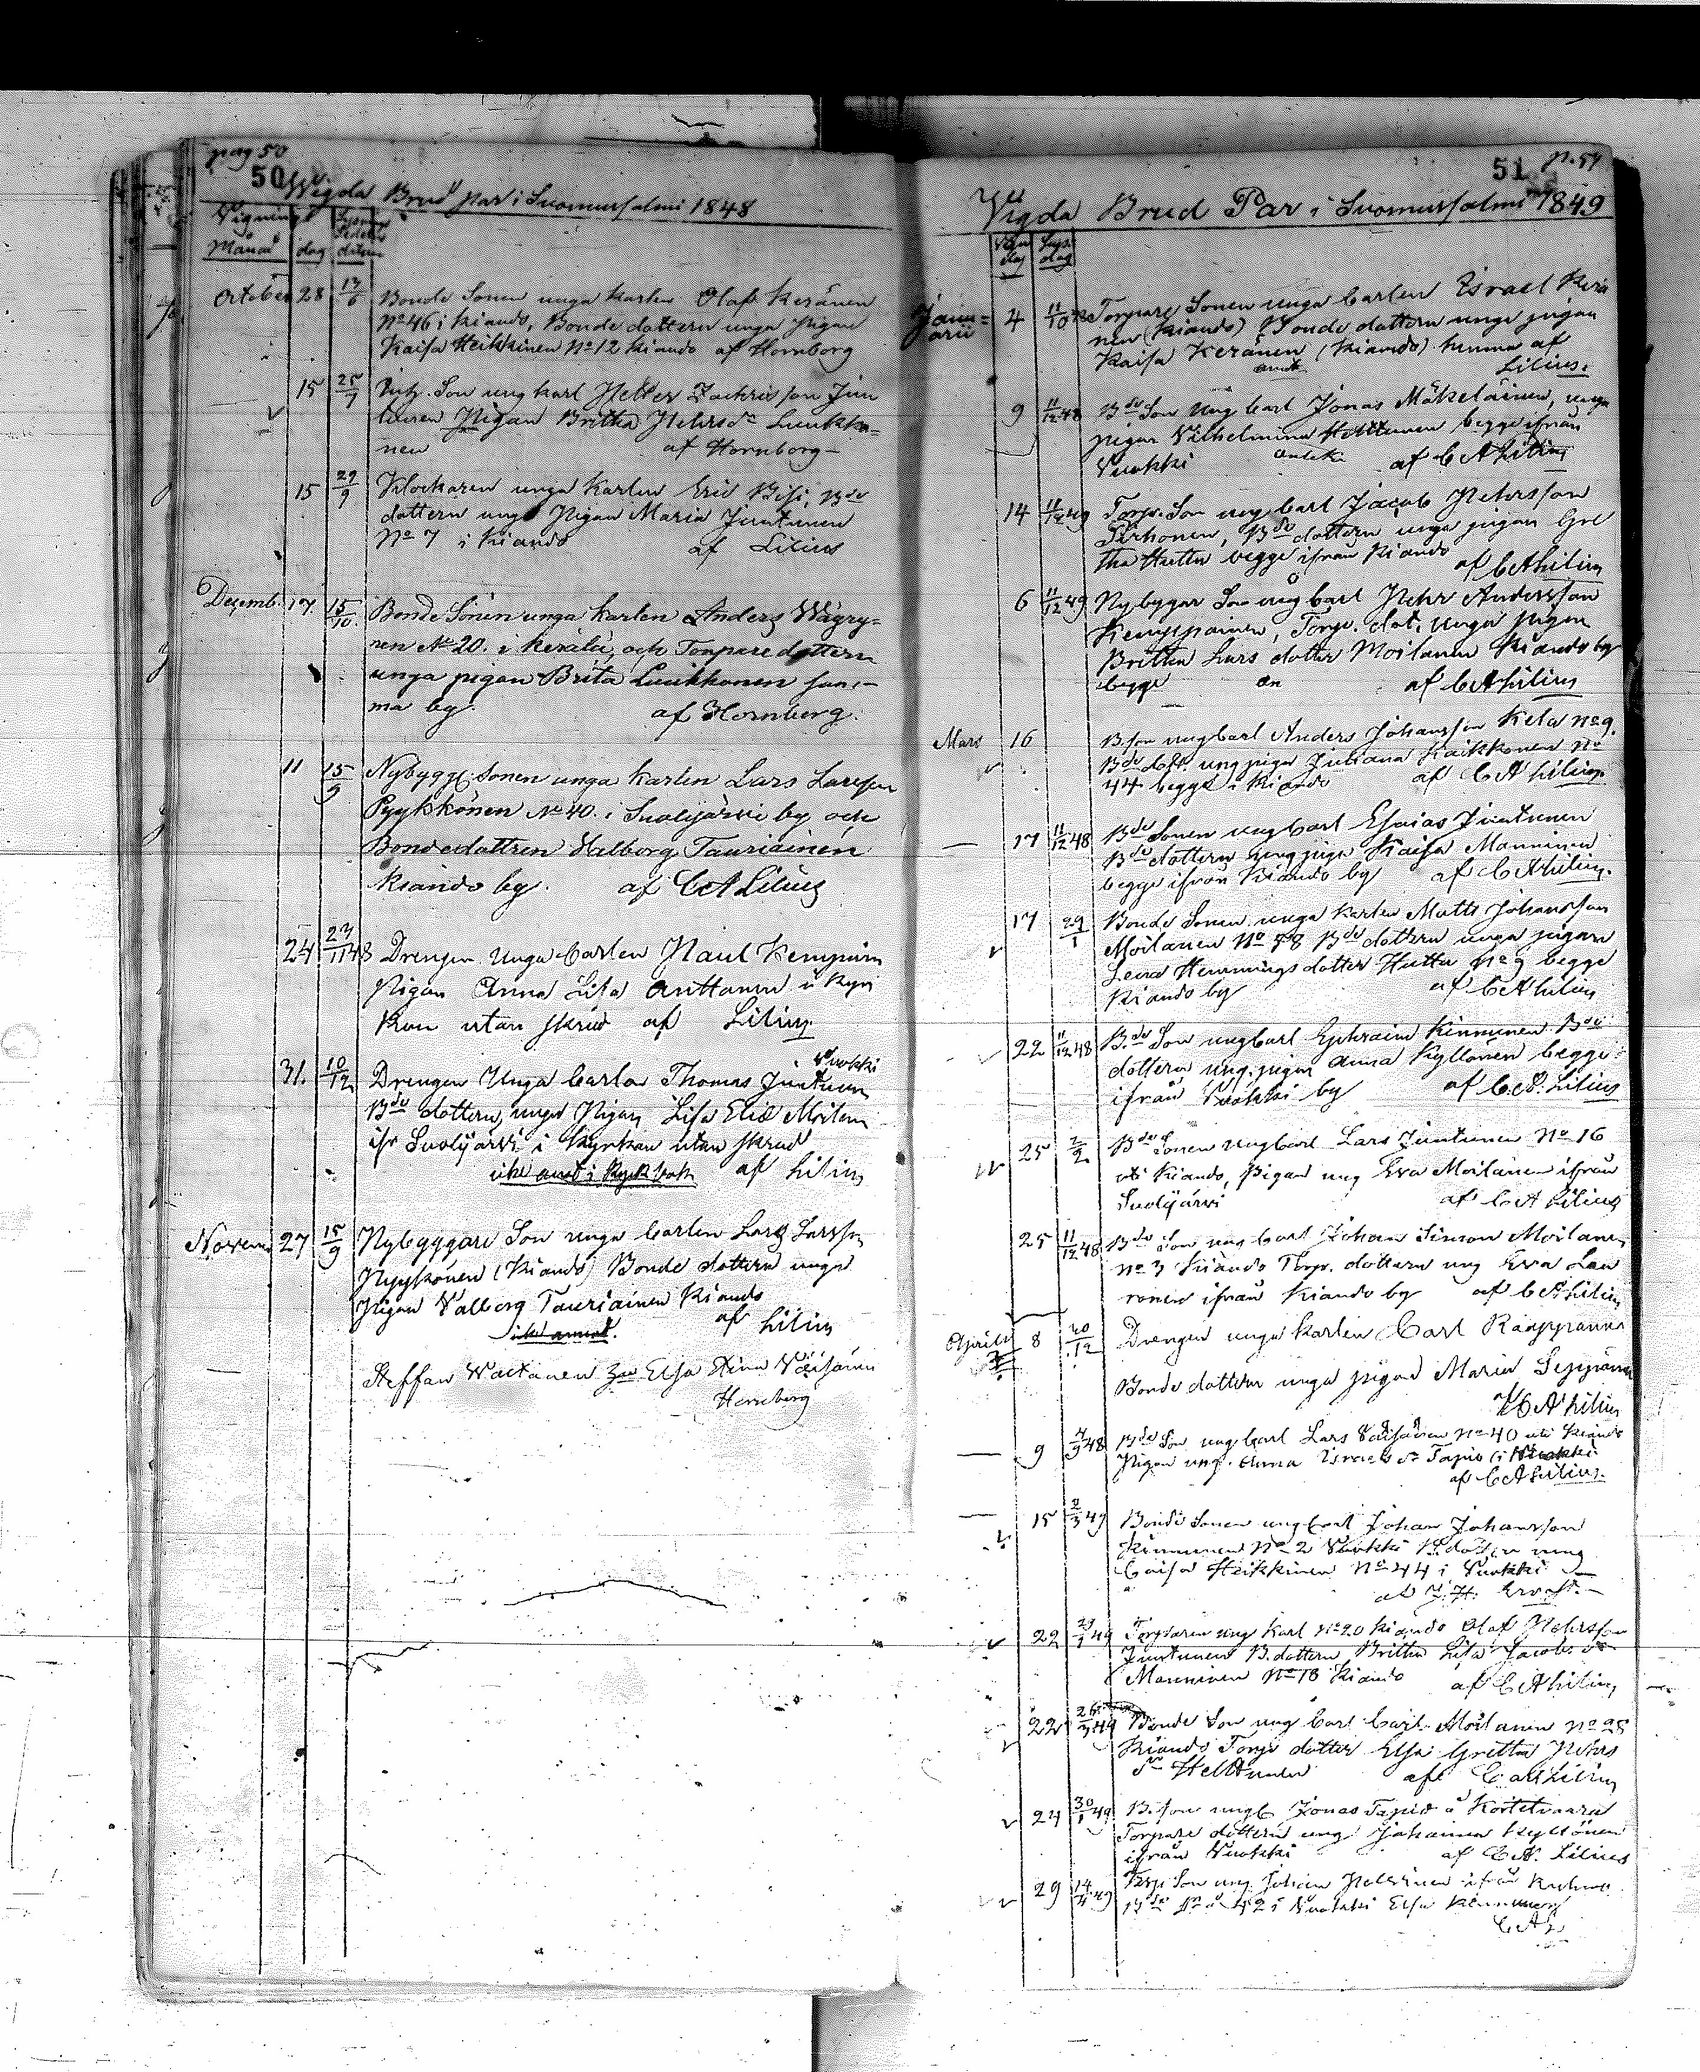 pag 50
50
Vigda Brud par i Suomussalmi 1848
Vignings
Månad dag
October 28 13/6 Bonde Sonen unga karlen Olof Keränen
No 46 i Kiando, Bonde dottern unga Pigan
Kaisa Heikkinen No 12 Kiando af Hornborg
15 25/9 Son ung karl Petter Zachrisson Jun
tuinen Pigan Britha Pehrsdr Luukko=
nen af Hornborg
15 29/9 Klockaren unga Karlen Eric Bisi, Bde
dottern unga Pigan Maria Juntunen
No 7 i Kiando af Lilius
Decemb. 17 15/10 Bonde Sonen unga karlen Anders Wägry-
nen No 20. i Kerälä, och Torpare dottern
unga pigan Brita Luukkonen sam-
ma by. af Hornborg.
11 15/9 Nybygg. sonen unga karlen Lars Larsson
Pyykkönen No 40. i Suolijärvi by och
Bondedottren Valborg Tauriainen
Kiando by. af C A Lilius
24 23/11 48 Drengen Unga Carlen Paul Kempain
Pigan Anna Lisa Anttonen i Kyr
kan utan skrud af Lilius
31. 10/12 Drengen Unga Carlen Thomas Juntunen Vuokki
Bde dottern unga Pigan Lisa Moilan
ifr Suolijärvi i Kyrkan utan skrud
af Lilius
Novem 27 15/9 Nybyggare Son unga Carlen Lars Larsson
Pyykönen (Kiando) Bonde dottern unga
Pigan Valborg Tauriainen Kiando
af Lilius
Steffan Wactanen Elsa Stina Väisänen
Hornborg
51 p. 51
Vigda Brud Par i Suomussalmi 1849
dag
Janu=
arii 4 11/10 Torpare Sonen unga Carlen Israel Kerä
nen (Kiando) Bonde dottern unga pigan
Kaisa Keränen (Kiando) af
Lilius.
9 11/12 48 Bde Son Ung Carl Jonas Mäkeläinen, unga
pigan Vilhelmina Holttunen begge ifrån
Vuokki af C A Lilius
14 11/12 49 Torp. Son ung Carl Jacob Pehrsson
Pirhonen, Bde dottern unga pigan Gre
tha Huttu begge ifrån Kiando
af C A Lilius
6 11/12 49 Nybyggar Son ung Carl Pehr Andersson
Kemppainen, Torp. dot. unga pigan
Britha Lars dotter Moilanen Kiando by
begge af C A Lilius
Mars 16 B. son ung Carl Anders Johansson Kela No 9.
Bde dott. ung piga Juliana Haikkonen No
44 begge i Kiando af C A Lilius
17 11/12 48 Bde Sonen ung Carl Esaias Juntunen
Bde dottern ung piga Kaisa Manninen
begge ifrån Kiando by af C A Lilius.
17 29/1 Bonde Sonen unga Karlen Matts Johansson
Moilanen No 48 Bde dottern unga pigan
Lena Hemmings dotter Huttu No 9 begge
Kiando by af C A Lilius
22 11/12 48 Bde Son ung Carl Ephraim Kinnunen Bde
dottern ung. pigan Anna Kyllönen begge
ifrån Vuokki by af C. A. Lilius
25 2/2 Bde Sonen ung Carl Lars Juntunen No 16
uti Kiando, Pigan ung Eva Moilanen ifrån
Suolijärvi af C A Lilius
25 11/12 48 Bde Son ung Carl Johan Simon Moilanen
No 3 Kiando Torp. dottern ung Eva Lau
ronen ifrån Kiando by af C A Lilius
Aprill 8 10/12 Drengen unga karlen Carl Räppänen
Bonde dottern unga pigan Maria Seppänen
C A Lilius
9 4/9 48 Bde Son ung Carl Lars Väisänen No 40 uti Kiando
Pigan ung. Anna Israels dr Tapio i Vuokki
af C A Lilius.
15 2/3 49 Bonde Sonen ung Carl Johan Johansson
Kinnunen No 2 Vuokki B. dottern ung
Caisa Heikkinen No 44 i Vuokki
22 29/1 49 Torparen ung Karl No 20 Kiando Olof Pehrsson
Juntunen B. dottern Britha Lisa Jacobs dr
Manninen No 18 Kiando af C A Lilius
22 26/3 49 Bonde Son ung Carl Carl Moilanen No 28
Kiando Torp. dotter Elsa Gretha Pehrs
dr Holttunen af C A Lilius
24 30/1 49 B. son ung C Jonas Tapio å Kortetvaara
Torpare dottern ung Johanna Kyllönen
ifrån Vuokki af C A. Lilius
29 14/4 49 Torp Son ung Johan Pulkinen ifrån Kuhmo
Bde No 42 i Vuokki Elsa Kinnunen
C A L